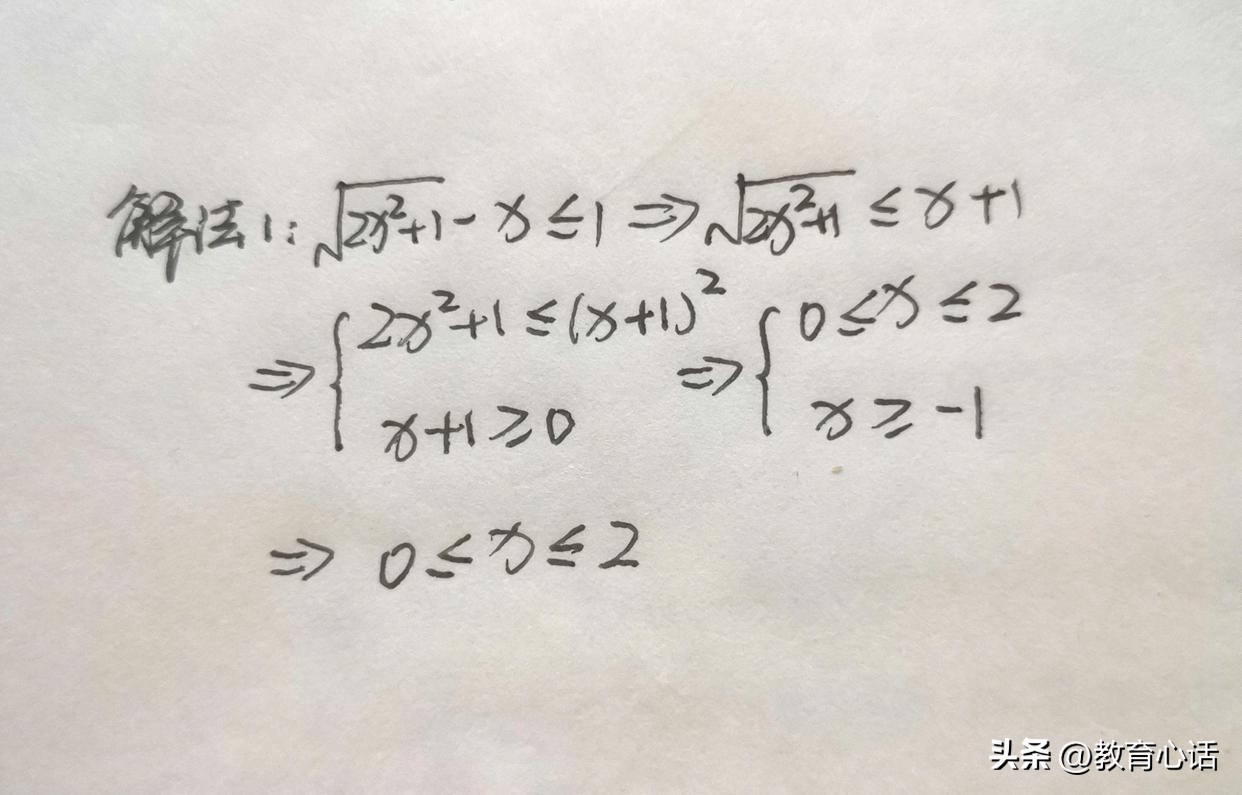 解法1: √(2x²+1) - x ≤ 1 ⇒ √(2x²+1) ≤ x+1
⇒ { 2x²+1 ≤ (x+1)² ⇒ { 0 ≤ x ≤ 2
x+1 ≥ 0 x ≥ -1
⇒ 0 ≤ x ≤ 2
头条 @教育心话